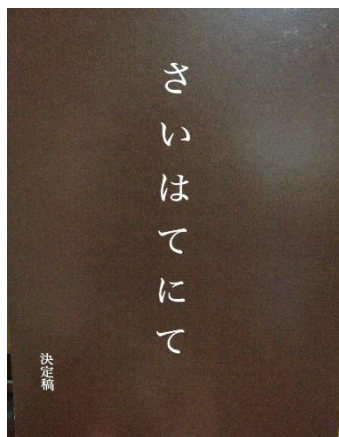 さいはてにて
決定稿